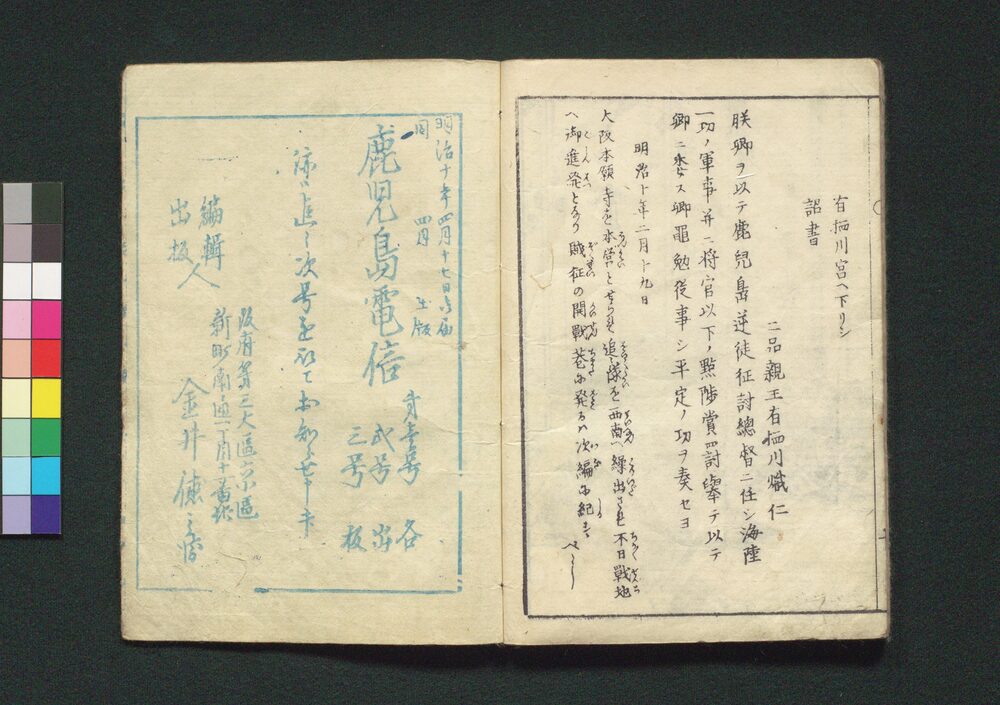 有栖川宮ヘ下リシ
詔書
二品親王有栖川熾仁
朕卿ヲ以テ鹿児島逆徒征討總督ニ任シ海陸
一切ノ軍事并ニ将官以下ノ黜陟賞罰擧テ以テ
卿ニ委ス卿黽勉従事シ平定ノ功ヲ奏セヨ
明治十年二月十九日
大阪本願寺を本営と せられ追々隊を西南へ繰出され不日戦地
へ御進発となり賊征の開戦 発るハ次編に紀す べし
明治十年四月十七日御届
同 四月 出版
鹿児島電信
壱号 弐号 三号 各 出板
追々次号を 知らせ申
編輯
出板人
阪府第三大區六小區
新町南通一丁目十一番地
金井徳